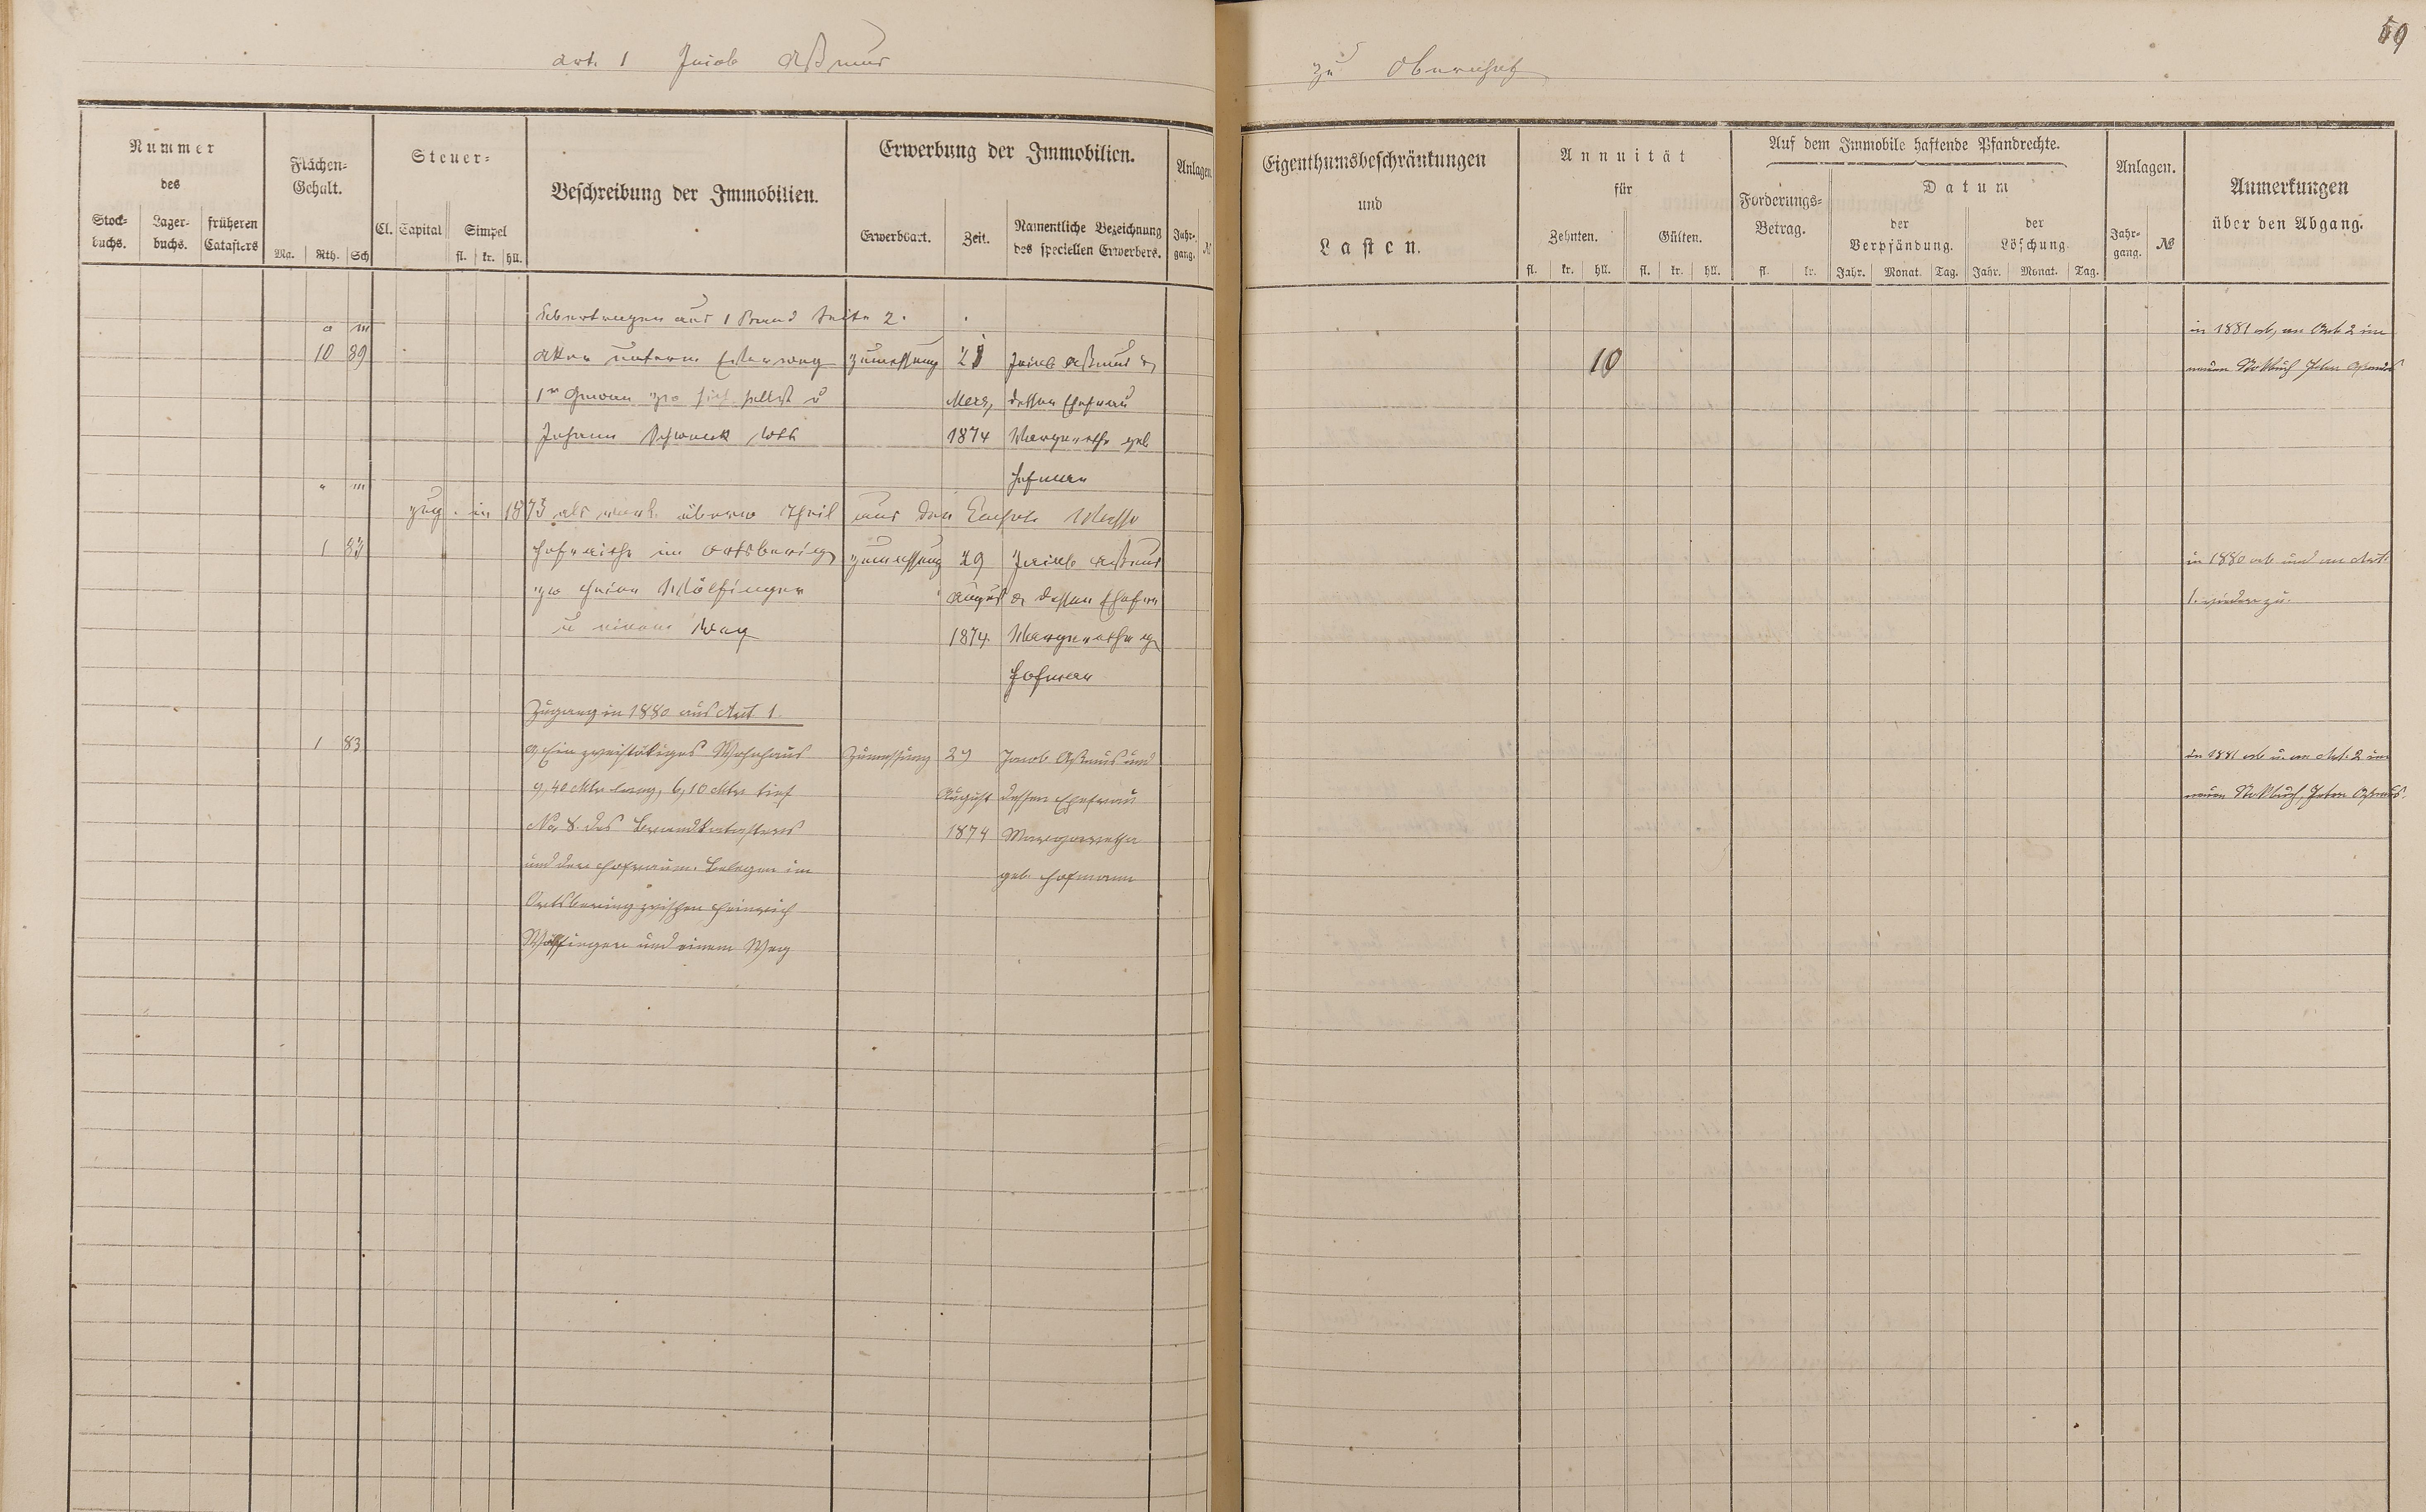 59
Art. 1 Jacob Aßmus
zu Obernhof
Nummer
des
Stock-
buchs.
Lager-
buchs.
früheren
Catasters
Flächen-
Gehalt.
Ma. Rth. Sch
Steuer-
Cl. Capital Simpel
fl. kr. hll.
Beschreibung der Immobilien.
Erwerbung der Immobilien.
Erwerbsart. Zeit. Namentliche Bezeichnung
des speciellen Erwerbers.
Anlagen
Jahr-
gang.
N
Eigenthumsbeschränkungen
und
Lasten.
Annuität
für
Zehnten. Gülten.
fl. kr. hll. fl. kr. hll.
Auf dem Immobile haftende Pfandrechte.
Forderungs-
Betrag.
fl. kr.
Datum
der
Verpfändung.
der
Löschung
Jahr. Monat. Tag. Jahr. Monat. Tag.
Anlagen.
Jahr-
gang.
№
Anmerkungen
über den Abgang.
Uebertragen aus 1 Band Seite 2.
a m
10 89
Acker unterm
1r Gewann zw sich selbst u
Johann
Zumessung
21
März
1874
Jacob Aßmus &
dessen Ehefrau
Margarethe geb
Hofmann
10
in 1881 ab, an Art. 2 im
neuen Stockbuch Peter Aßmus
a m
zug. in 1873 als überw Theil aus der Masse
1 83
Hofraithe im Ortsbering
zw Heinr Wölfinger
u einem Weg
Zumessung
29
August
1874.
Jacob Aßmus
& dessen Ehefra
Margarethe g
Hofmann
in 1880 ab und an Art.
1. wieder zu.
Zugang in 1880 aus Art 1.
1 83
a, Ein zweistöckiges Wohnhaus
9,40 Mtr lang, 6,10 Mtr tief
No 8. des Brandkatasters
und der Hofraum. Belegen im
Ortsbering zwischen Heinrich
Wölfinger und einem Weg
Zumessung
29
August
1874
Jacob Aßmus und
dessen Ehefrau
Margaretha
geb. Hofmann
In 1881 ab u. an Art. 2 im
neuen Stockbuch, Peter Aßmus.